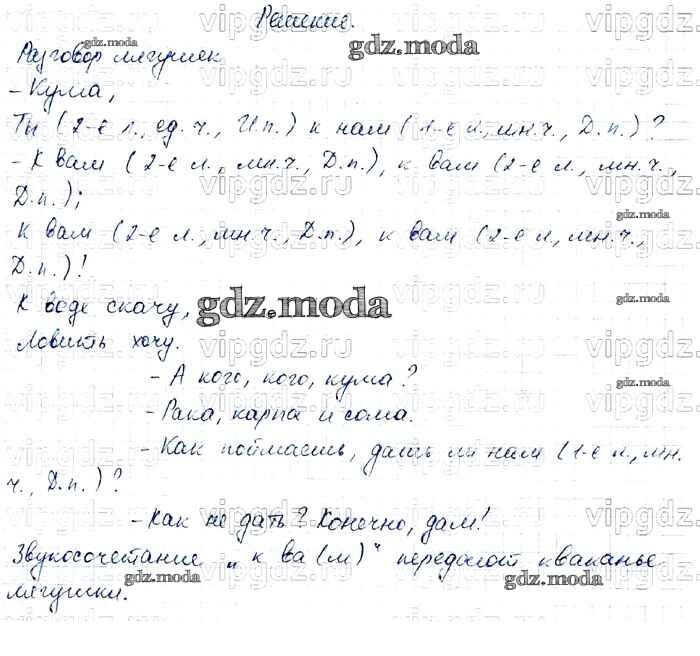 Решение.
Разговор лягушек
- Кума,
Ты (2-е л., ед. ч., И.п.) к нам (1-е л., мн.ч., Д.п.)?
- К вам (2-е л., мн.ч., Д.п.), к вам (2-е л., мн.ч.,
Д.п.);
К вам (2-е л., мн.ч., Д.п.), к вам (2-е л, мн.ч.,
Д.п.)!
К воде скачу,
Ловить хочу.
- А кого, кого, кума?
- Рака, карпа и сома.
- Как поймаешь, дашь ли нам (1-е л., мн.
ч., Д.п.)?
- Как не дать? Конечно, дам!
Звукосочетание „к ва(м)" передаёт кваканье
лягушки.
gdz.moda
vipgdz.ru